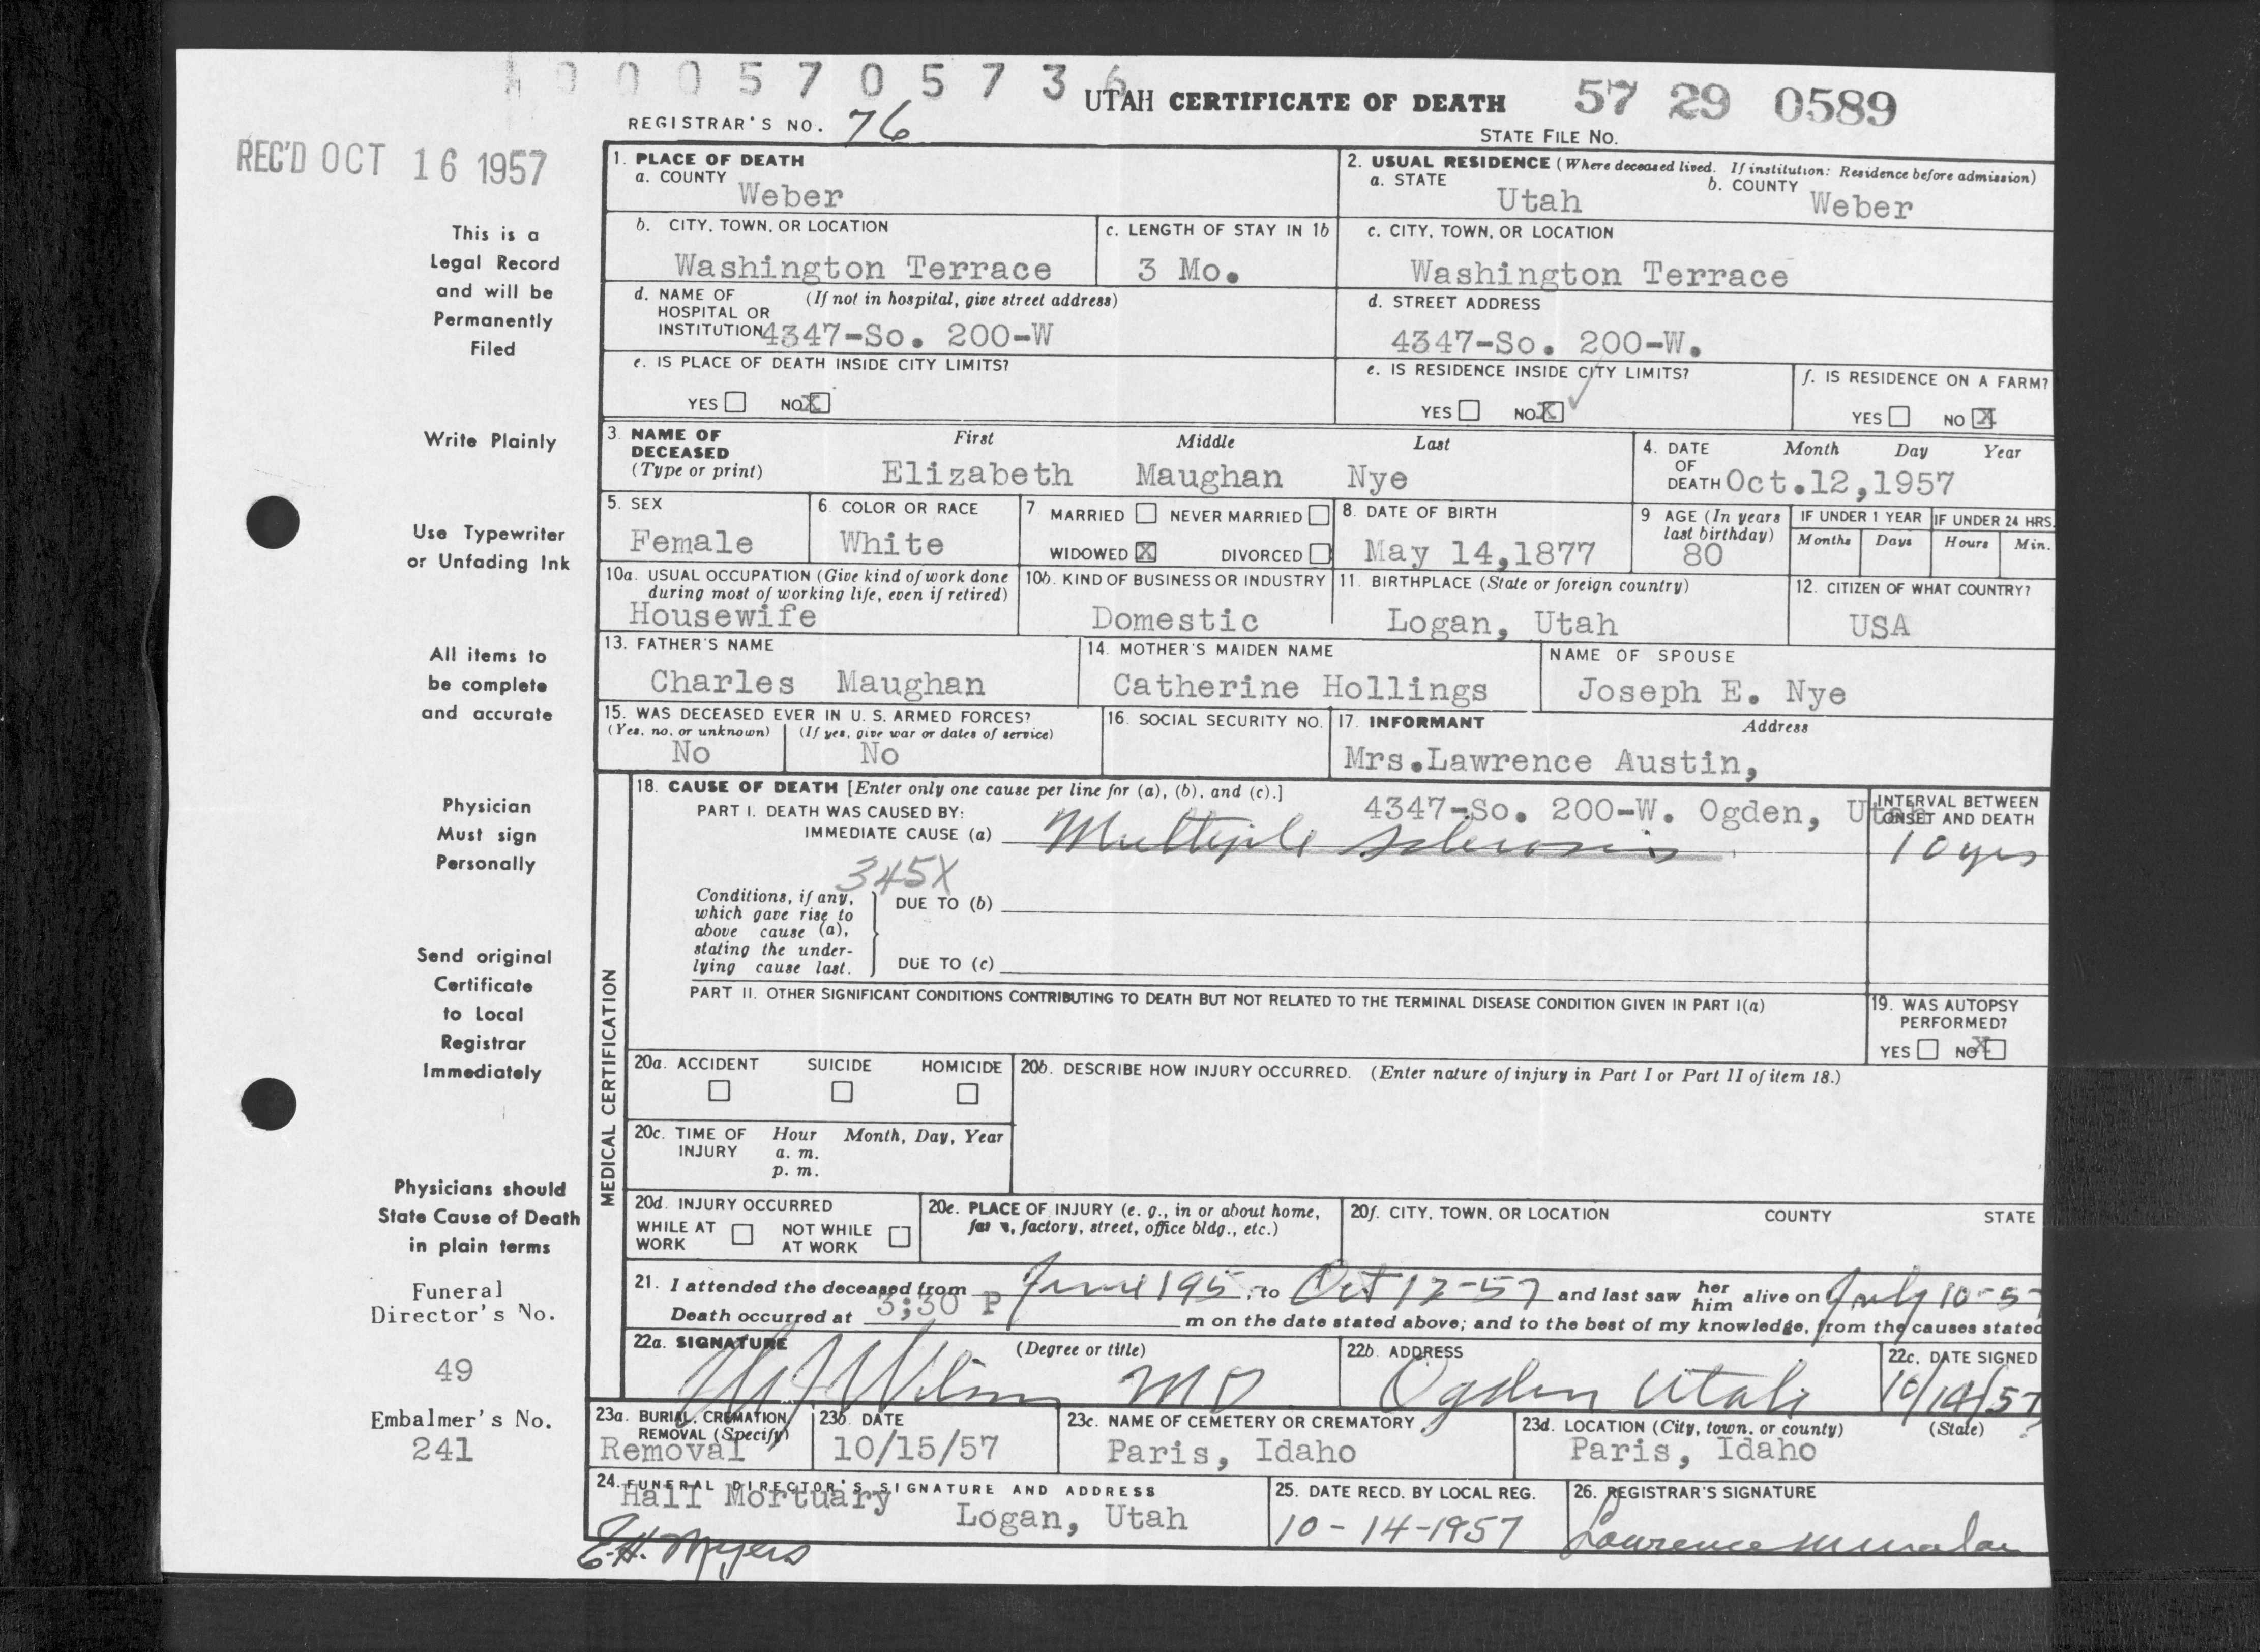 1 9 0 0 5 7 0 5 7 3 6
UTAH CERTIFICATE OF DEATH
57 29 0589
REGISTRAR'S NO. 76
STATE FILE NO.
REC'D OCT 16 1957
1. PLACE OF DEATH
a. COUNTY
Weber
2. USUAL RESIDENCE (Where deceased lived. If institution: Residence before admission)
a. STATE
Utah
b. COUNTY
Weber
b. CITY, TOWN, OR LOCATION
Washington Terrace
c. LENGTH OF STAY IN 1b
3 Mo.
c. CITY, TOWN, OR LOCATION
Washington Terrace
d. NAME OF HOSPITAL OR INSTITUTION
(If not in hospital, give street address)
4347-So. 200-W
d. STREET ADDRESS
4347-So. 200-W.
e. IS PLACE OF DEATH INSIDE CITY LIMITS?
YES NO X
e. IS RESIDENCE INSIDE CITY LIMITS?
YES NO X
f. IS RESIDENCE ON A FARM?
YES NO X
3. NAME OF DECEASED (Type or print)
First Middle Last
Elizabeth Maughan Nye
4. DATE OF DEATH
Month Day Year
Oct.12,1957
5. SEX
Female
6. COLOR OR RACE
White
7. MARRIED NEVER MARRIED
WIDOWED X DIVORCED
8. DATE OF BIRTH
May 14,1877
9 AGE (In years last birthday)
80
IF UNDER 1 YEAR
Months Days
IF UNDER 24 HRS.
Hours Min.
10a. USUAL OCCUPATION (Give kind of work done during most of working life, even if retired)
Housewife
10b. KIND OF BUSINESS OR INDUSTRY
Domestic
11. BIRTHPLACE (State or foreign country)
Logan, Utah
12. CITIZEN OF WHAT COUNTRY?
USA
13. FATHER'S NAME
Charles Maughan
14. MOTHER'S MAIDEN NAME
Catherine Hollings
NAME OF SPOUSE
Joseph E. Nye
15. WAS DECEASED EVER IN U. S. ARMED FORCES?
(Yes, no, or unknown) (If yes, give war or dates of service)
No No
16. SOCIAL SECURITY NO.
17. INFORMANT
Address
Mrs.Lawrence Austin,
4347-So. 200-W. Ogden, Utah
18. CAUSE OF DEATH [Enter only one cause per line for (a), (b), and (c).]
PART I. DEATH WAS CAUSED BY:
IMMEDIATE CAUSE (a) Multiple sclerosis
INTERVAL BETWEEN ONSET AND DEATH
10 yrs
345X
Conditions, if any, which gave rise to above cause (a), stating the underlying cause last.
DUE TO (b)
DUE TO (c)
PART II. OTHER SIGNIFICANT CONDITIONS CONTRIBUTING TO DEATH BUT NOT RELATED TO THE TERMINAL DISEASE CONDITION GIVEN IN PART I(a)
19. WAS AUTOPSY PERFORMED?
YES NO X
MEDICAL CERTIFICATION
20a. ACCIDENT SUICIDE HOMICIDE
20b. DESCRIBE HOW INJURY OCCURRED. (Enter nature of injury in Part I or Part II of item 18.)
20c. TIME OF INJURY
Hour Month, Day, Year
a. m.
p. m.
20d. INJURY OCCURRED
WHILE AT WORK NOT WHILE AT WORK
20e. PLACE OF INJURY (e. g., in or about home, farm, factory, street, office bldg., etc.)
20f. CITY, TOWN, OR LOCATION COUNTY STATE
21. I attended the deceased from June 195 , to Oct 12-57 and last saw her him alive on July 10-57
Death occurred at 3;30 P m on the date stated above; and to the best of my knowledge, from the causes stated
22a. SIGNATURE
(Degree or title)
MD
22b. ADDRESS
Ogden Utah
22c. DATE SIGNED
10/14/57
23a. BURIAL, CREMATION, REMOVAL (Specify)
Removal
23b. DATE
10/15/57
23c. NAME OF CEMETERY OR CREMATORY
Paris, Idaho
23d. LOCATION (City, town, or county) (State)
Paris, Idaho
24. FUNERAL DIRECTOR'S SIGNATURE AND ADDRESS
Hall Mortuary
Logan, Utah
E.H. Myers
25. DATE RECD. BY LOCAL REG.
10-14-1957
26. REGISTRAR'S SIGNATURE
Lawrence
This is a
Legal Record
and will be
Permanently
Filed
Write Plainly
Use Typewriter
or Unfading Ink
All items to
be complete
and accurate
Physician
Must sign
Personally
Send original
Certificate
to Local
Registrar
Immediately
Physicians should
State Cause of Death
in plain terms
Funeral
Director's No.
49
Embalmer's No.
241